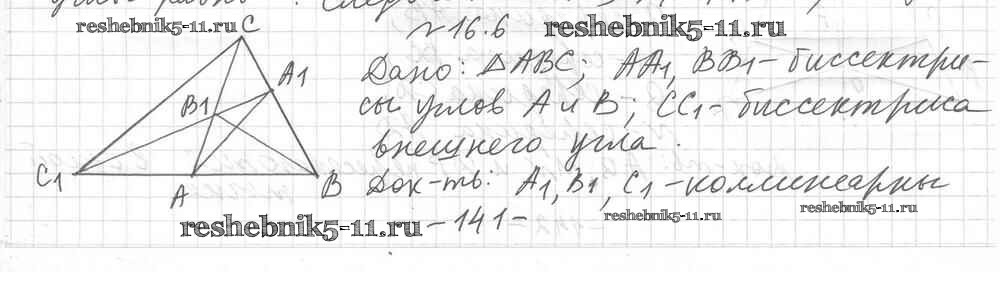 reshebnik5-11.ru
№16.6
reshebnik5-11.ru
C
A1
B1
C1
A
B
Дано: △ABC; AA1, BB1 - биссектри-
сы углов A и B; CC1 - биссектриса
внешнего угла.
Док-ть: A1, B1, C1 - коллинеарны
reshebnik5-11.ru
-141-
reshebnik5-11.ru
reshebnik5-11.ru